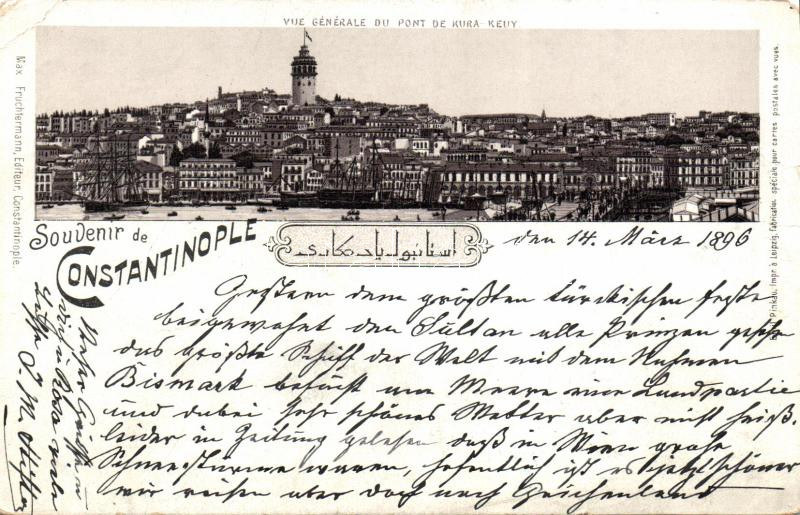 VUE GÉNÉRALE DU PONT DE KURA-KEUY
Max Fruchtermann, Editeur, Constantinople.
Pinkau, Impr. à Leipzig, fabrication spéciale pour cartes postales avec vues.
Souvenir de
CONSTANTINOPLE
استانبول يادكارى
den 14. März 1896
Gestern dem größten türkischen Feste
beigewohnt den Sultan alle Prinzen gesehn
das größte Schiff der Welt mit dem Nahmen
Bismark besucht am Meere eine Landpartie
und dabei sehr schönes Wetter aber nicht heiß.
leider in Zeitung gelesen daß in Wien große
Schneestürme waren, hofentlich ist es jetzt schöner
wir reisen aber doch nach Grichenland
Rosa